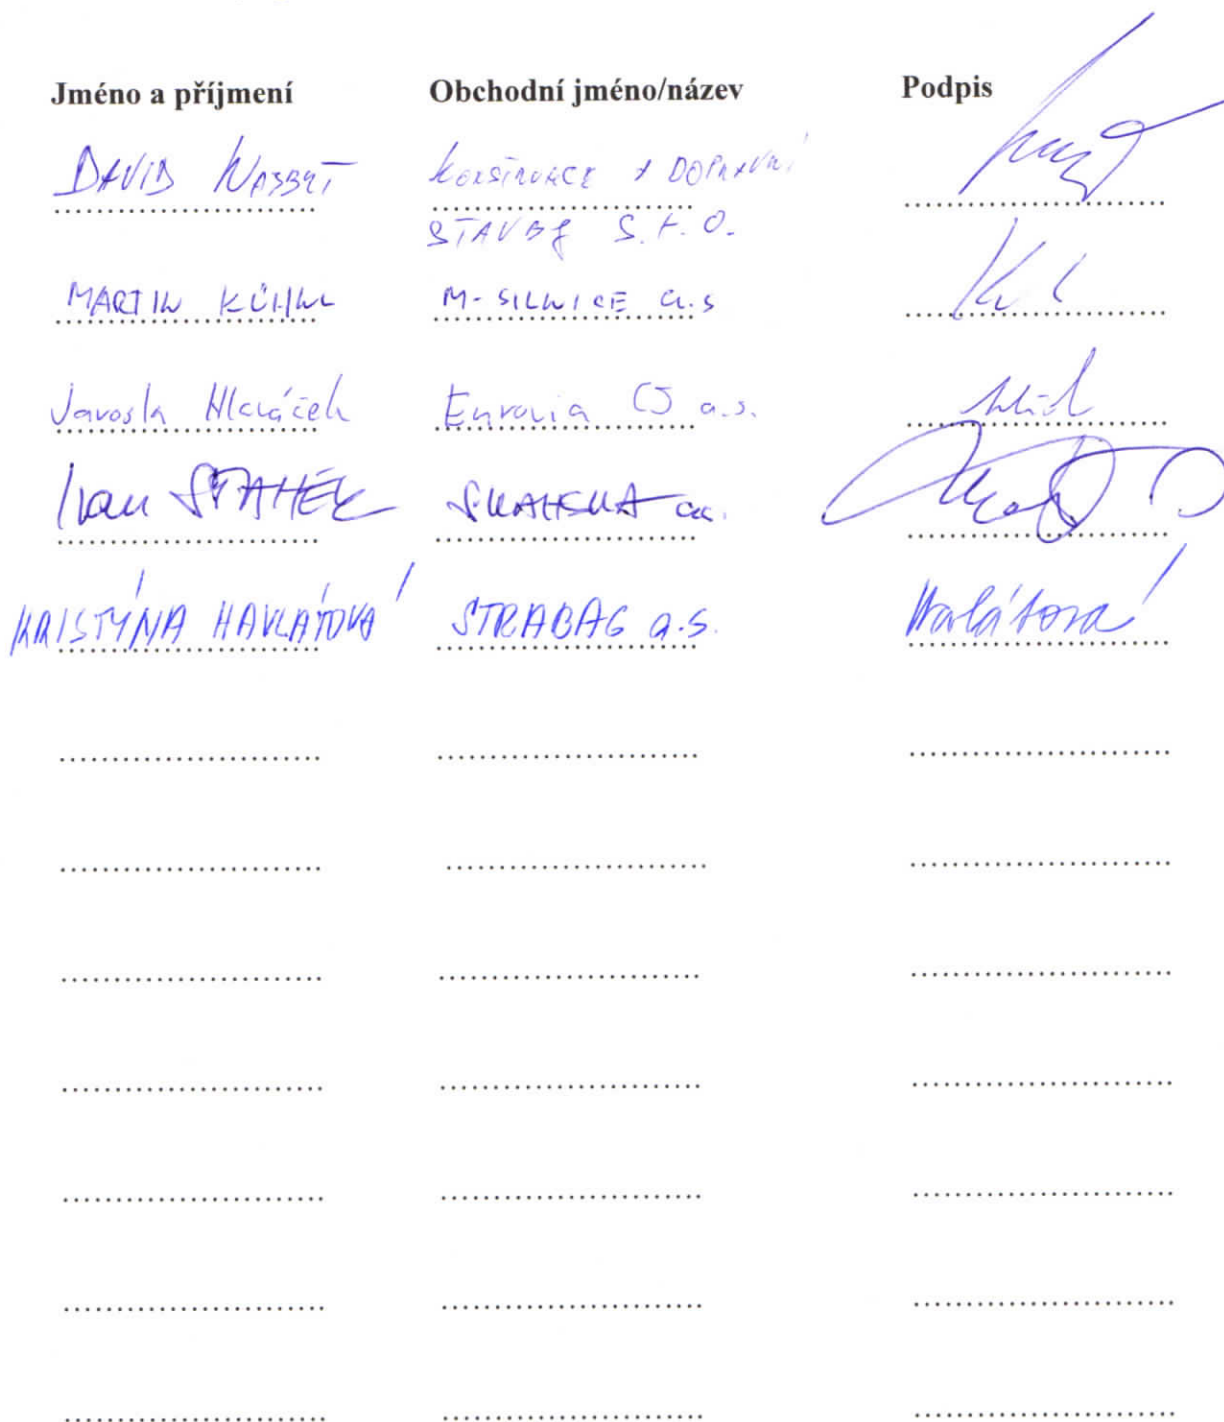 Jméno a příjmení Obchodní jméno/název Podpis
DAVID
STAVBY S.R.O.
MARTIN KÜHNL M-SILNICE a.s
Jarosla Hlaváček Eurovia CS a.s.
Ivan STAHEK
KRISTÝNA HAVLÁTOVÁ STRABAG a.s. Havlátová